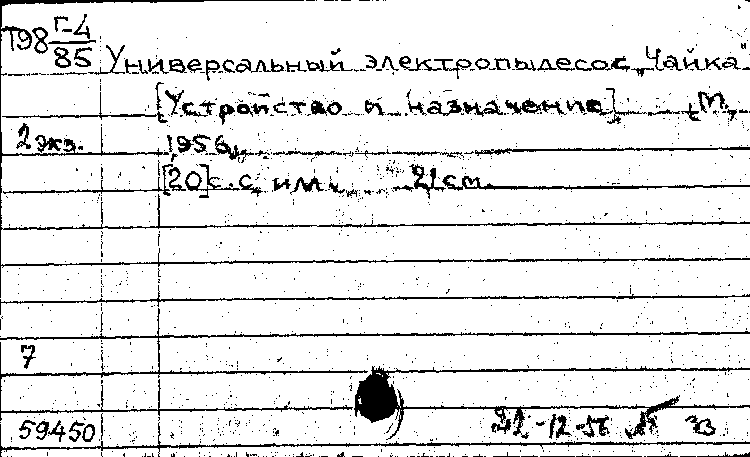 Т98 Г-4/85 Универсальный электропылесос „Чайка"
[Устройство и назначение]. [М.,
2 экз. 1956].
[20] с. с илл. 21 см.
7
59450 22-12-56 зз